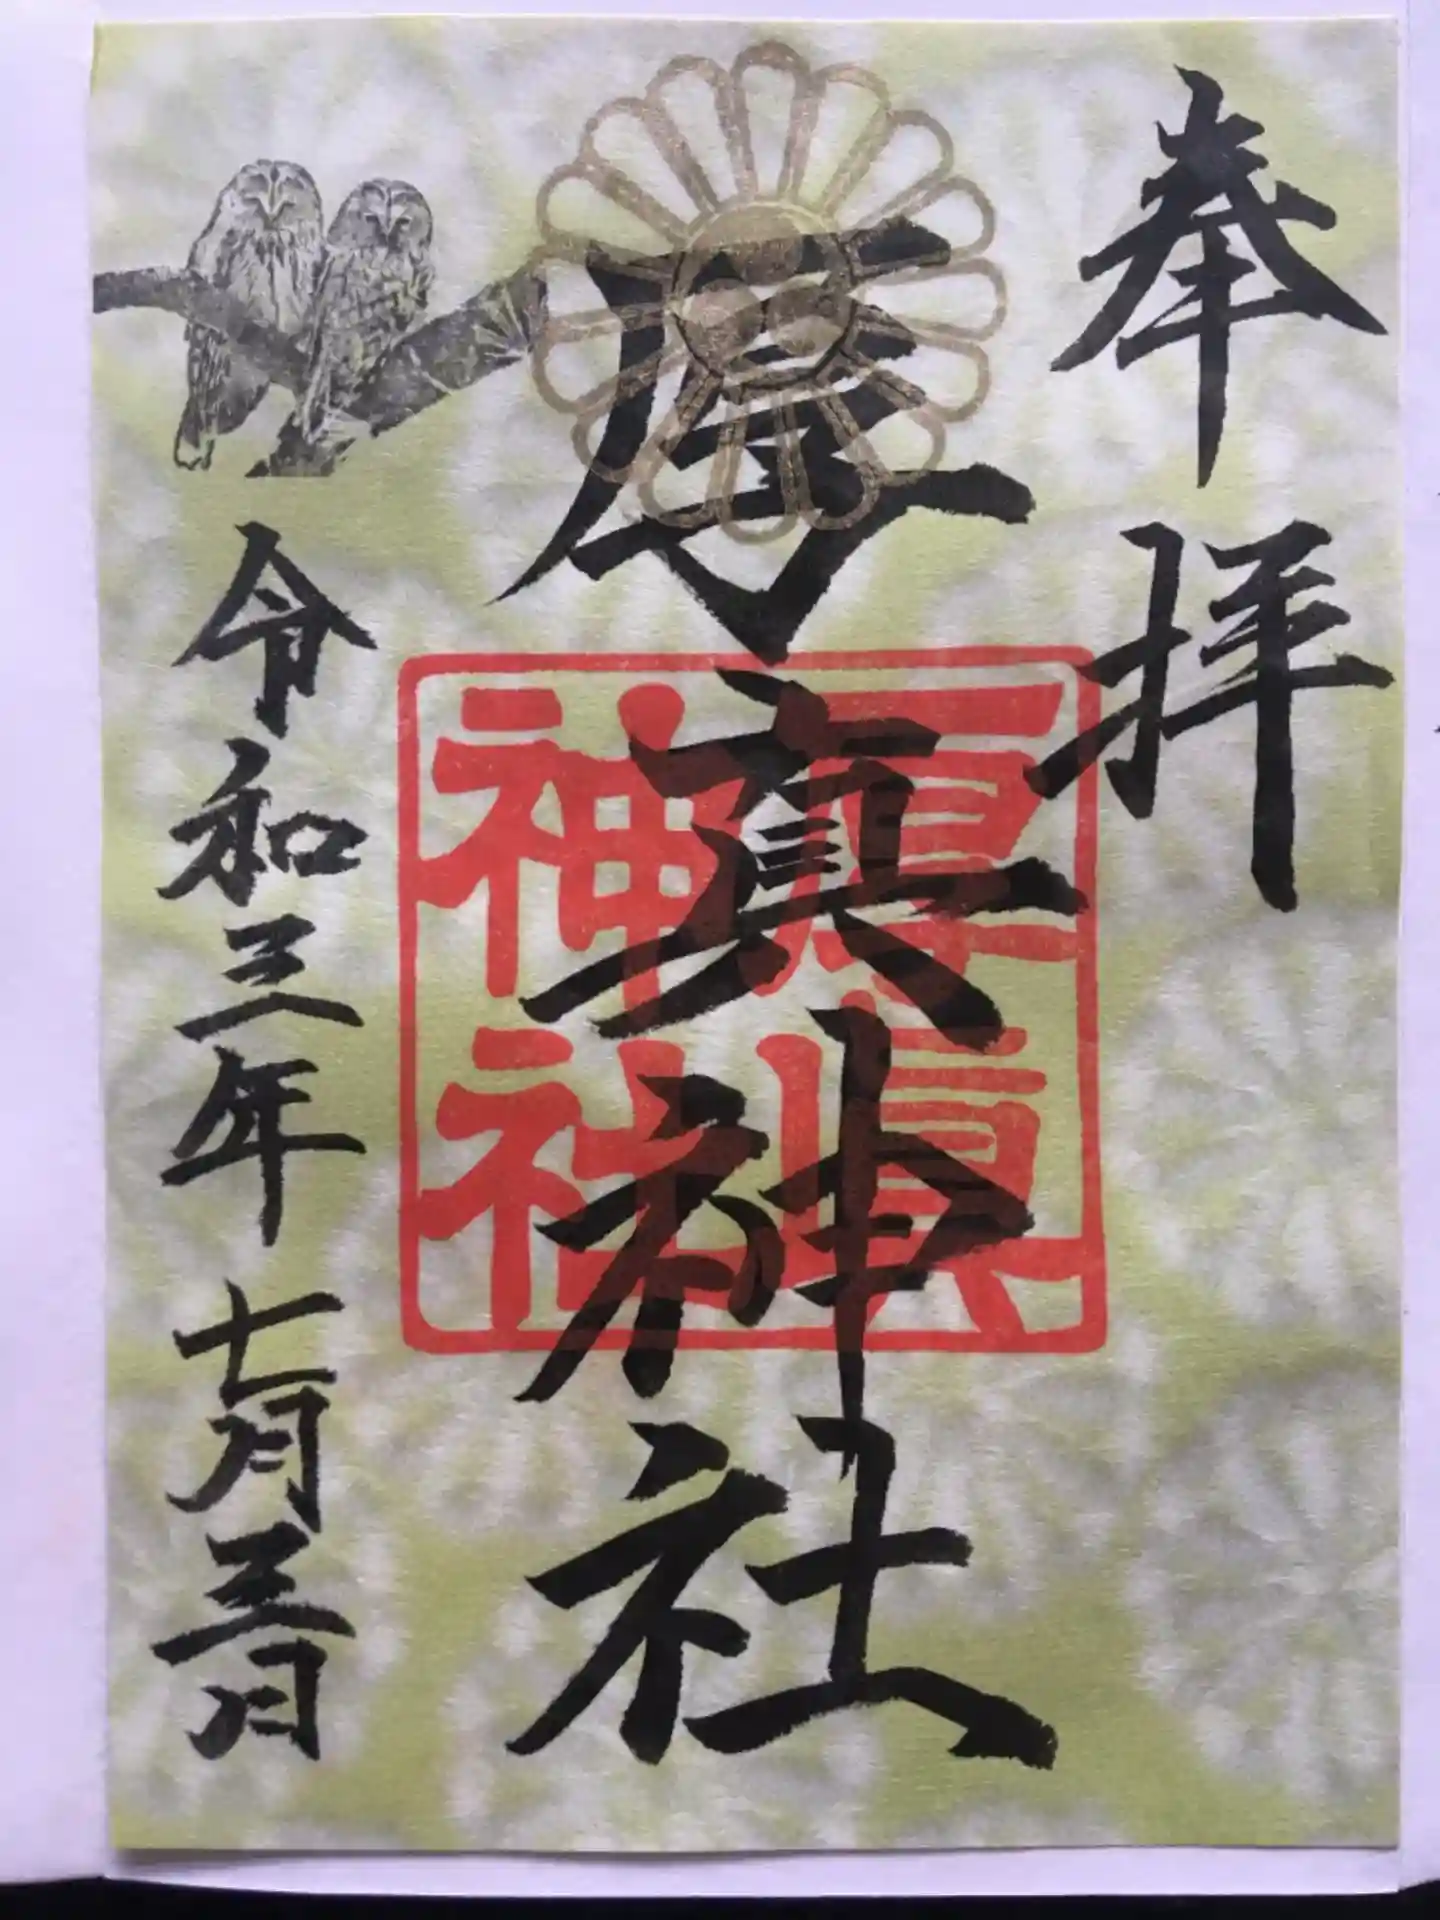 奉拝
厚真神社
厚真神社
令和三年七月三日